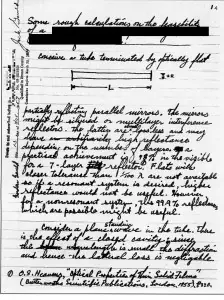 Some rough calculations on the feasibility
of a
conceive a tube terminated by optically flat
L
partially reflecting parallel mirrors. The mirrors
might be silvered or multilayer interference
reflectors. The latter are lossless and may
have high reflectance
depending on the number of layers. A
practical achievement is 98% in the visible
for a 7-layer reflector. Flats with
closer tolerance than 1/100 λ are not available
so if a resonant system is desired, higher
reflectance would not be useful. However
for a nonresonant system, the 99.9% reflectances
which are possible might be useful.
Consider a plane wave in the tube. There
is the effect of a closed cavity; since
the wavelength is small the diffraction
and hence the lateral loss is negligible
O.S. Heavens, "Optical Properties of Thin Solid Films"
(Butterworths Scientific Publications, London, 1955) p.220.